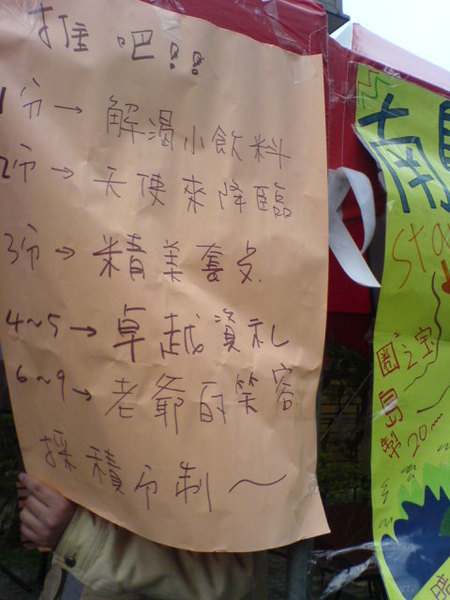 推吧!!
1分→解渴小飲料
2分→天使來降臨
3分→精美套点
4~5→卓越資礼
6~9→老爺的笑容
採積分制~
南
sta
圈之宝
島製
20